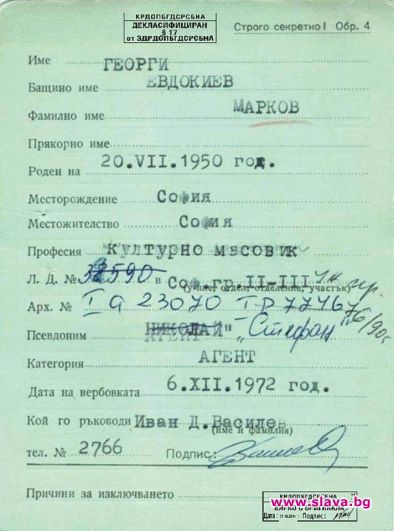 КРДОПБГДСРСБНА
ДЕКЛАСИФИЦИРАН
§ 17
от ЗДРДОПБГДСРСБНА
Строго секретно! Обр. 4
Име ГЕОРГИ
Бащино име ЕВДОКИЕВ
Фамилно име МАРКОВ
Прякорно име
Роден на 20.VII.1950 год.
Месторождение София
Местожителство София
Професия културно масовик
Л. Д. № 32590 в Соф.гр.II-III
(отдел, отделение, участък)
Арх. № I a 23070 IP 77767
76/90г.
Псевдоним НИКОЛАЙ" „Стефан"
Категория АГЕНТ
Дата на вербовката 6.XII.1972 год.
Кой го ръководи Иван Д.Василев
(име и фамилия)
тел. № 2766 Подпис:
Причини за изключването
www.slava.bg
Дата: Подпис: